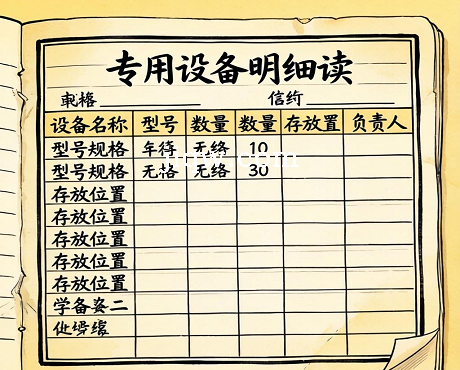 专用设备明细读
信
设备名称 型号 数量 数量 存放置 负责人
型号规格 年待 无络 10
型号规格 无格 无络 30
存放位置
存放位置
存放位置
存放位置
存放位置
学备姿二